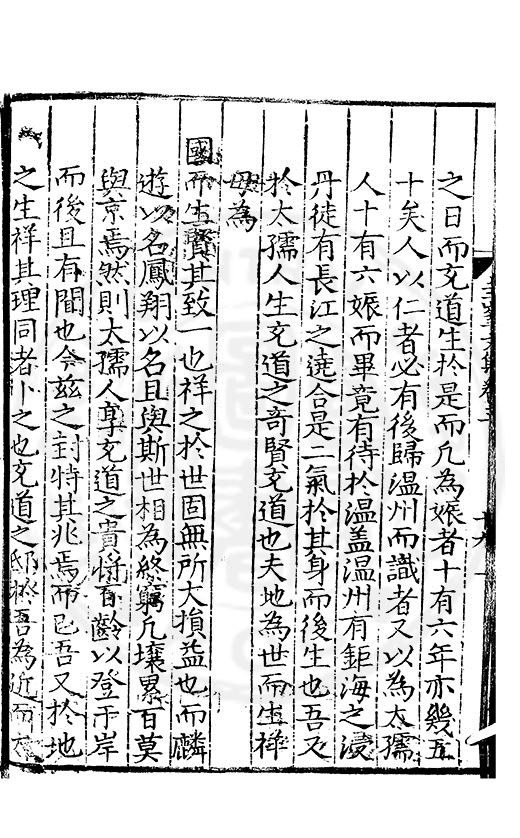 之日而充道生於是而凡為娠者十有六年亦幾五
十矣人以仁者必有後歸温州而識者又以為太孺
人十有六娠而畢竟有待於温盖温州有鉅海之浸
丹徒有長江之遶合是二氣於其身而後生也吾又
於太孺人生充道之奇賢充道也夫地為世而生祥
母為
國而生賢其致一也祥之於世固無所大損益也而麟
遊以名鳳翔以名且與斯世相為終窮凡壤累百莫
與京焉然則太孺人享充道之貴將百齡以登于岸
而後且有聞也今兹之封特其兆焉而已吾又於地
之生祥其理同者卜之也充道之邸於吾為近而
文集卷
十九